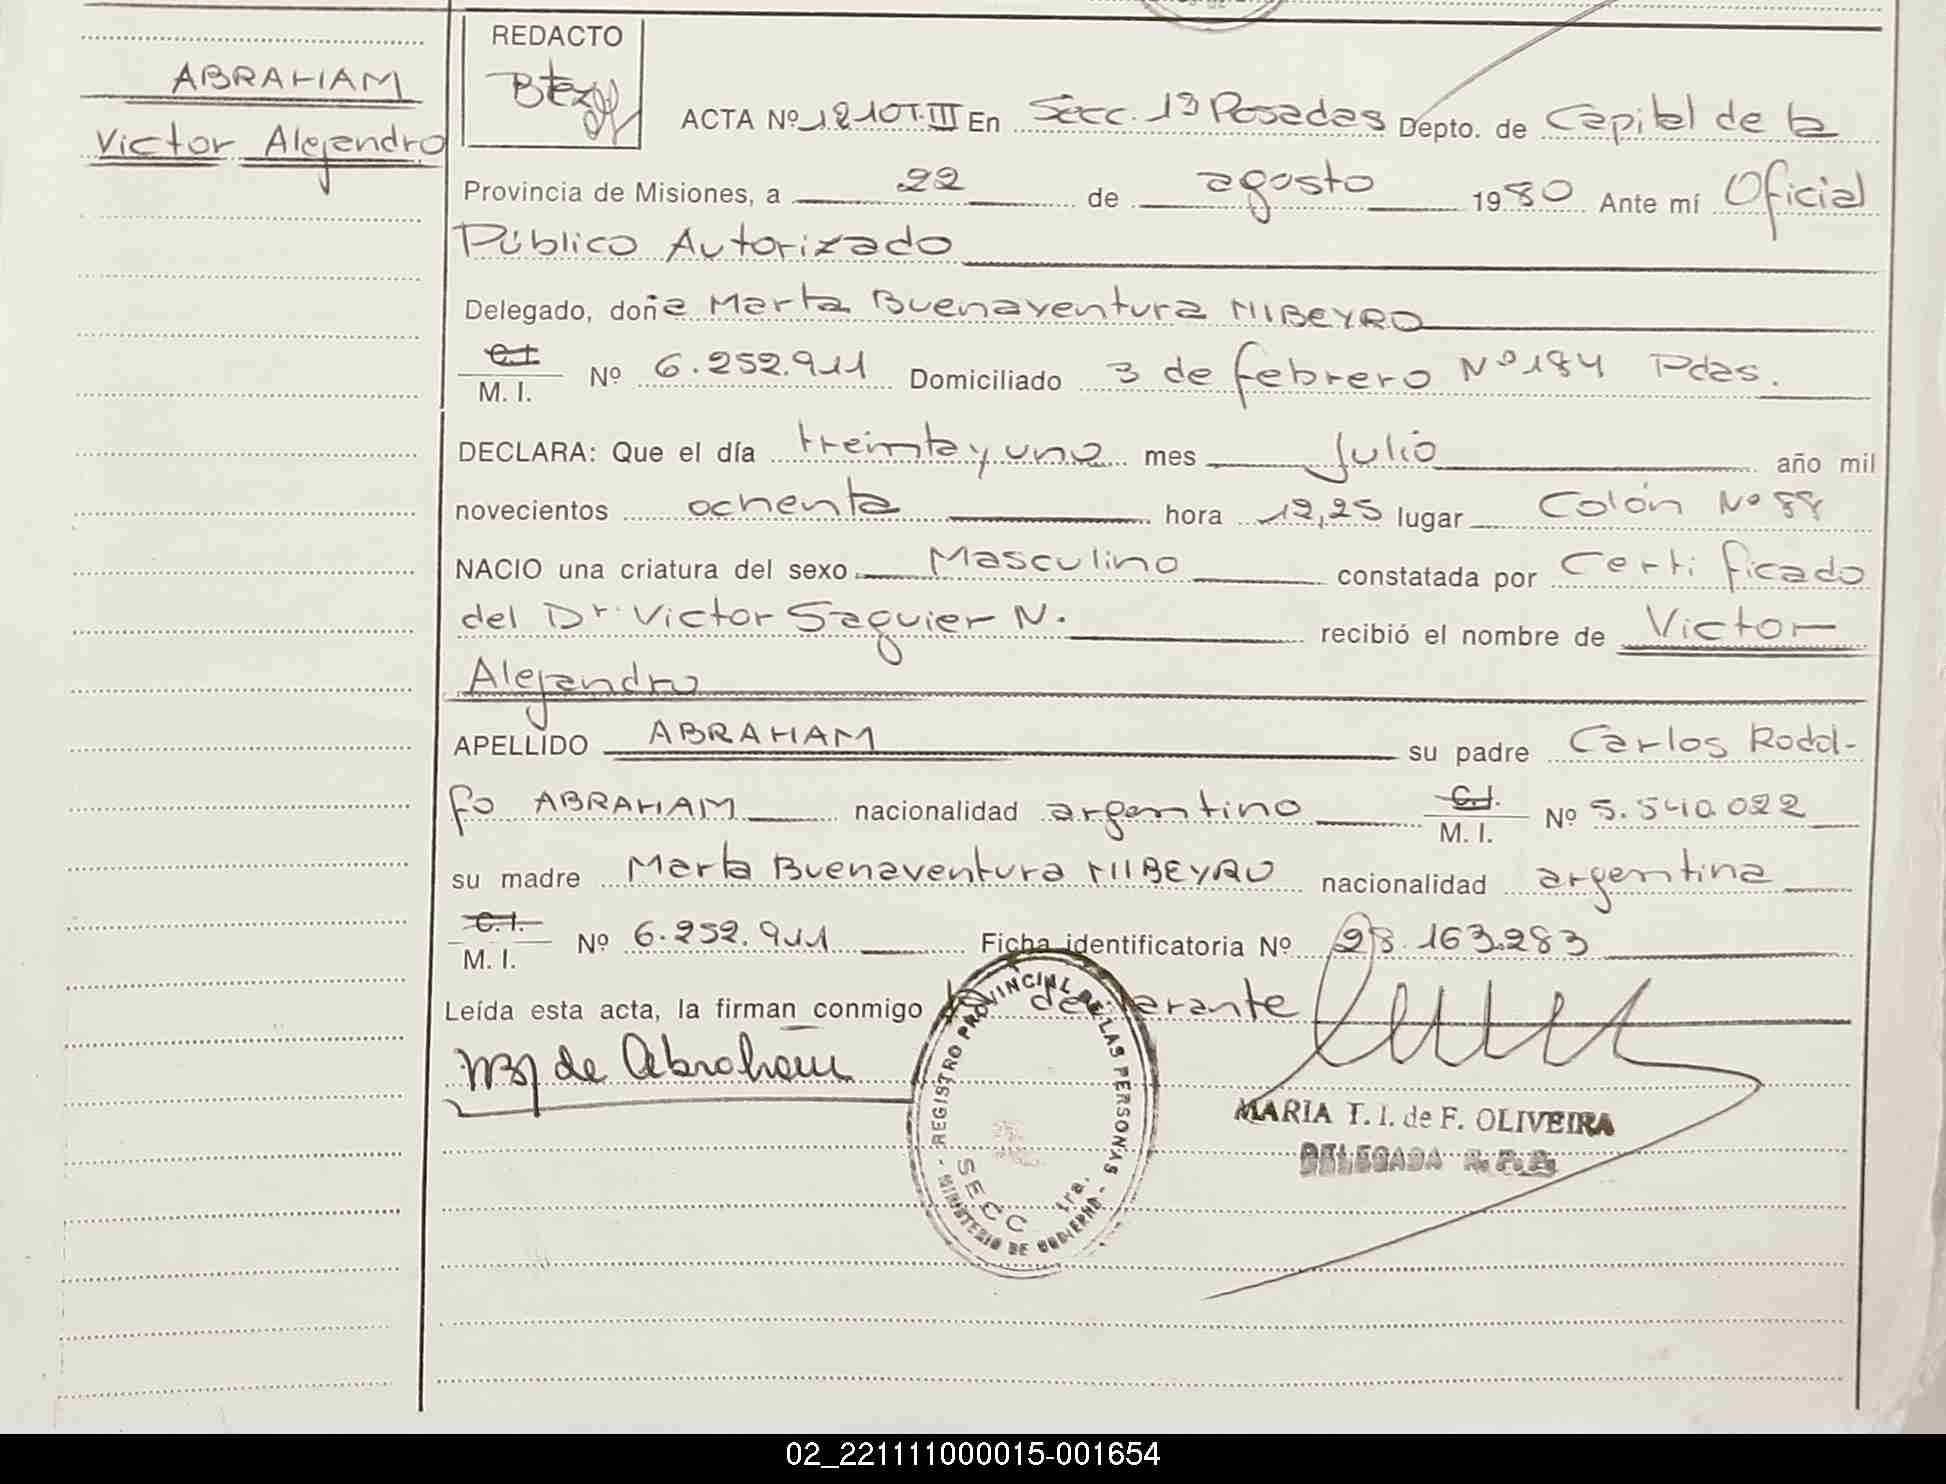 ABRAHAM
Victor Alejandro
REDACTO
ACTA Nº 1210 T. III En Secc. 1ª Posadas Depto. de Capital de la
Provincia de Misiones, a 22 de agosto 1980 Ante mí Oficial
Público Autorizado
Delegado, doña Marta Buenaventura NIBEYRO
C.I.
M. I. Nº 6.252.911 Domiciliado 3 de febrero Nº 184 Pdas.
DECLARA: Que el día treinta y uno mes Julio año mil
novecientos ochenta hora 12,25 lugar Colón Nº 88
NACIO una criatura del sexo Masculino constatada por Certificado
del Dr. Victor Saguier N. recibió el nombre de Victor
Alejandro
APELLIDO ABRAHAM su padre Carlos Rodol-
fo ABRAHAM nacionalidad argentino C.I. M. I. Nº 5.540.022
su madre Marta Buenaventura NIBEYRO nacionalidad argentina
C.I.
M. I. Nº 6.252.911 Ficha identificatoria Nº 28.163.283
Leída esta acta, la firman conmigo la declarante
de Abraham
REGISTRO PROVINCIAL DE LAS PERSONAS
SECC 1ra.
- MINISTERIO DE GOBIERNO -
MARIA T. I. de F. OLIVEIRA
DELEGADA R. P. P.
02_221111000015-001654